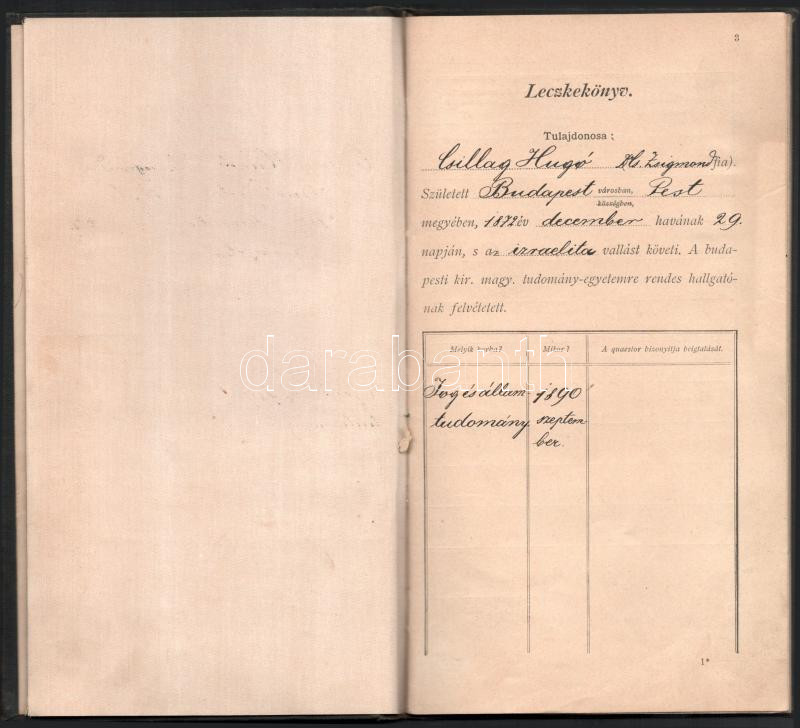 3
Leczkekönyv.
Tulajdonosa:
Csillag Hugó Zsigmond fia).
Született Budapest városban, községben, Pest
megyében, 1872 év december havának 29.
napján, s az izraelita vallást követi. A buda-
pesti kir. magy. tudomány-egyetemre rendes hallgató-
nak felvétetett.
Melyik karba? Mikor? A quaestor bizonyitja beigtatását.
Jog és állam- 1890
tudomány. szeptem
ber.
darabanth
1*